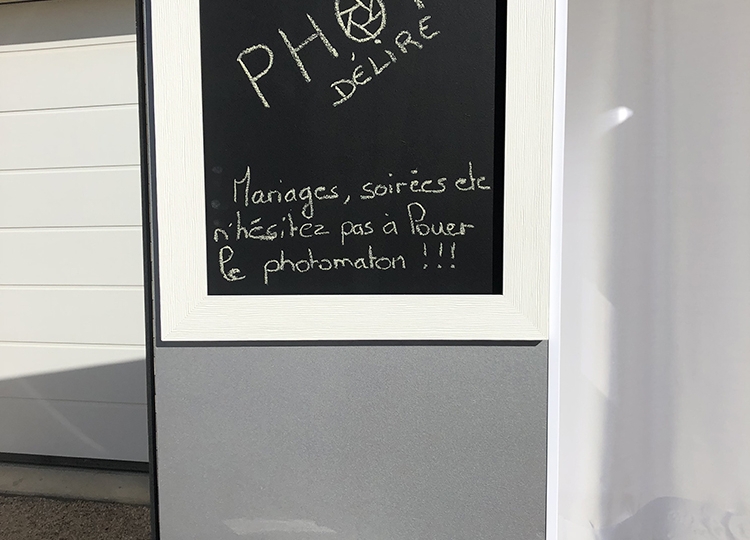 PHO
DÉLIRE
Mariages, soirées etc
n'hésitez pas à louer
le photomaton !!!